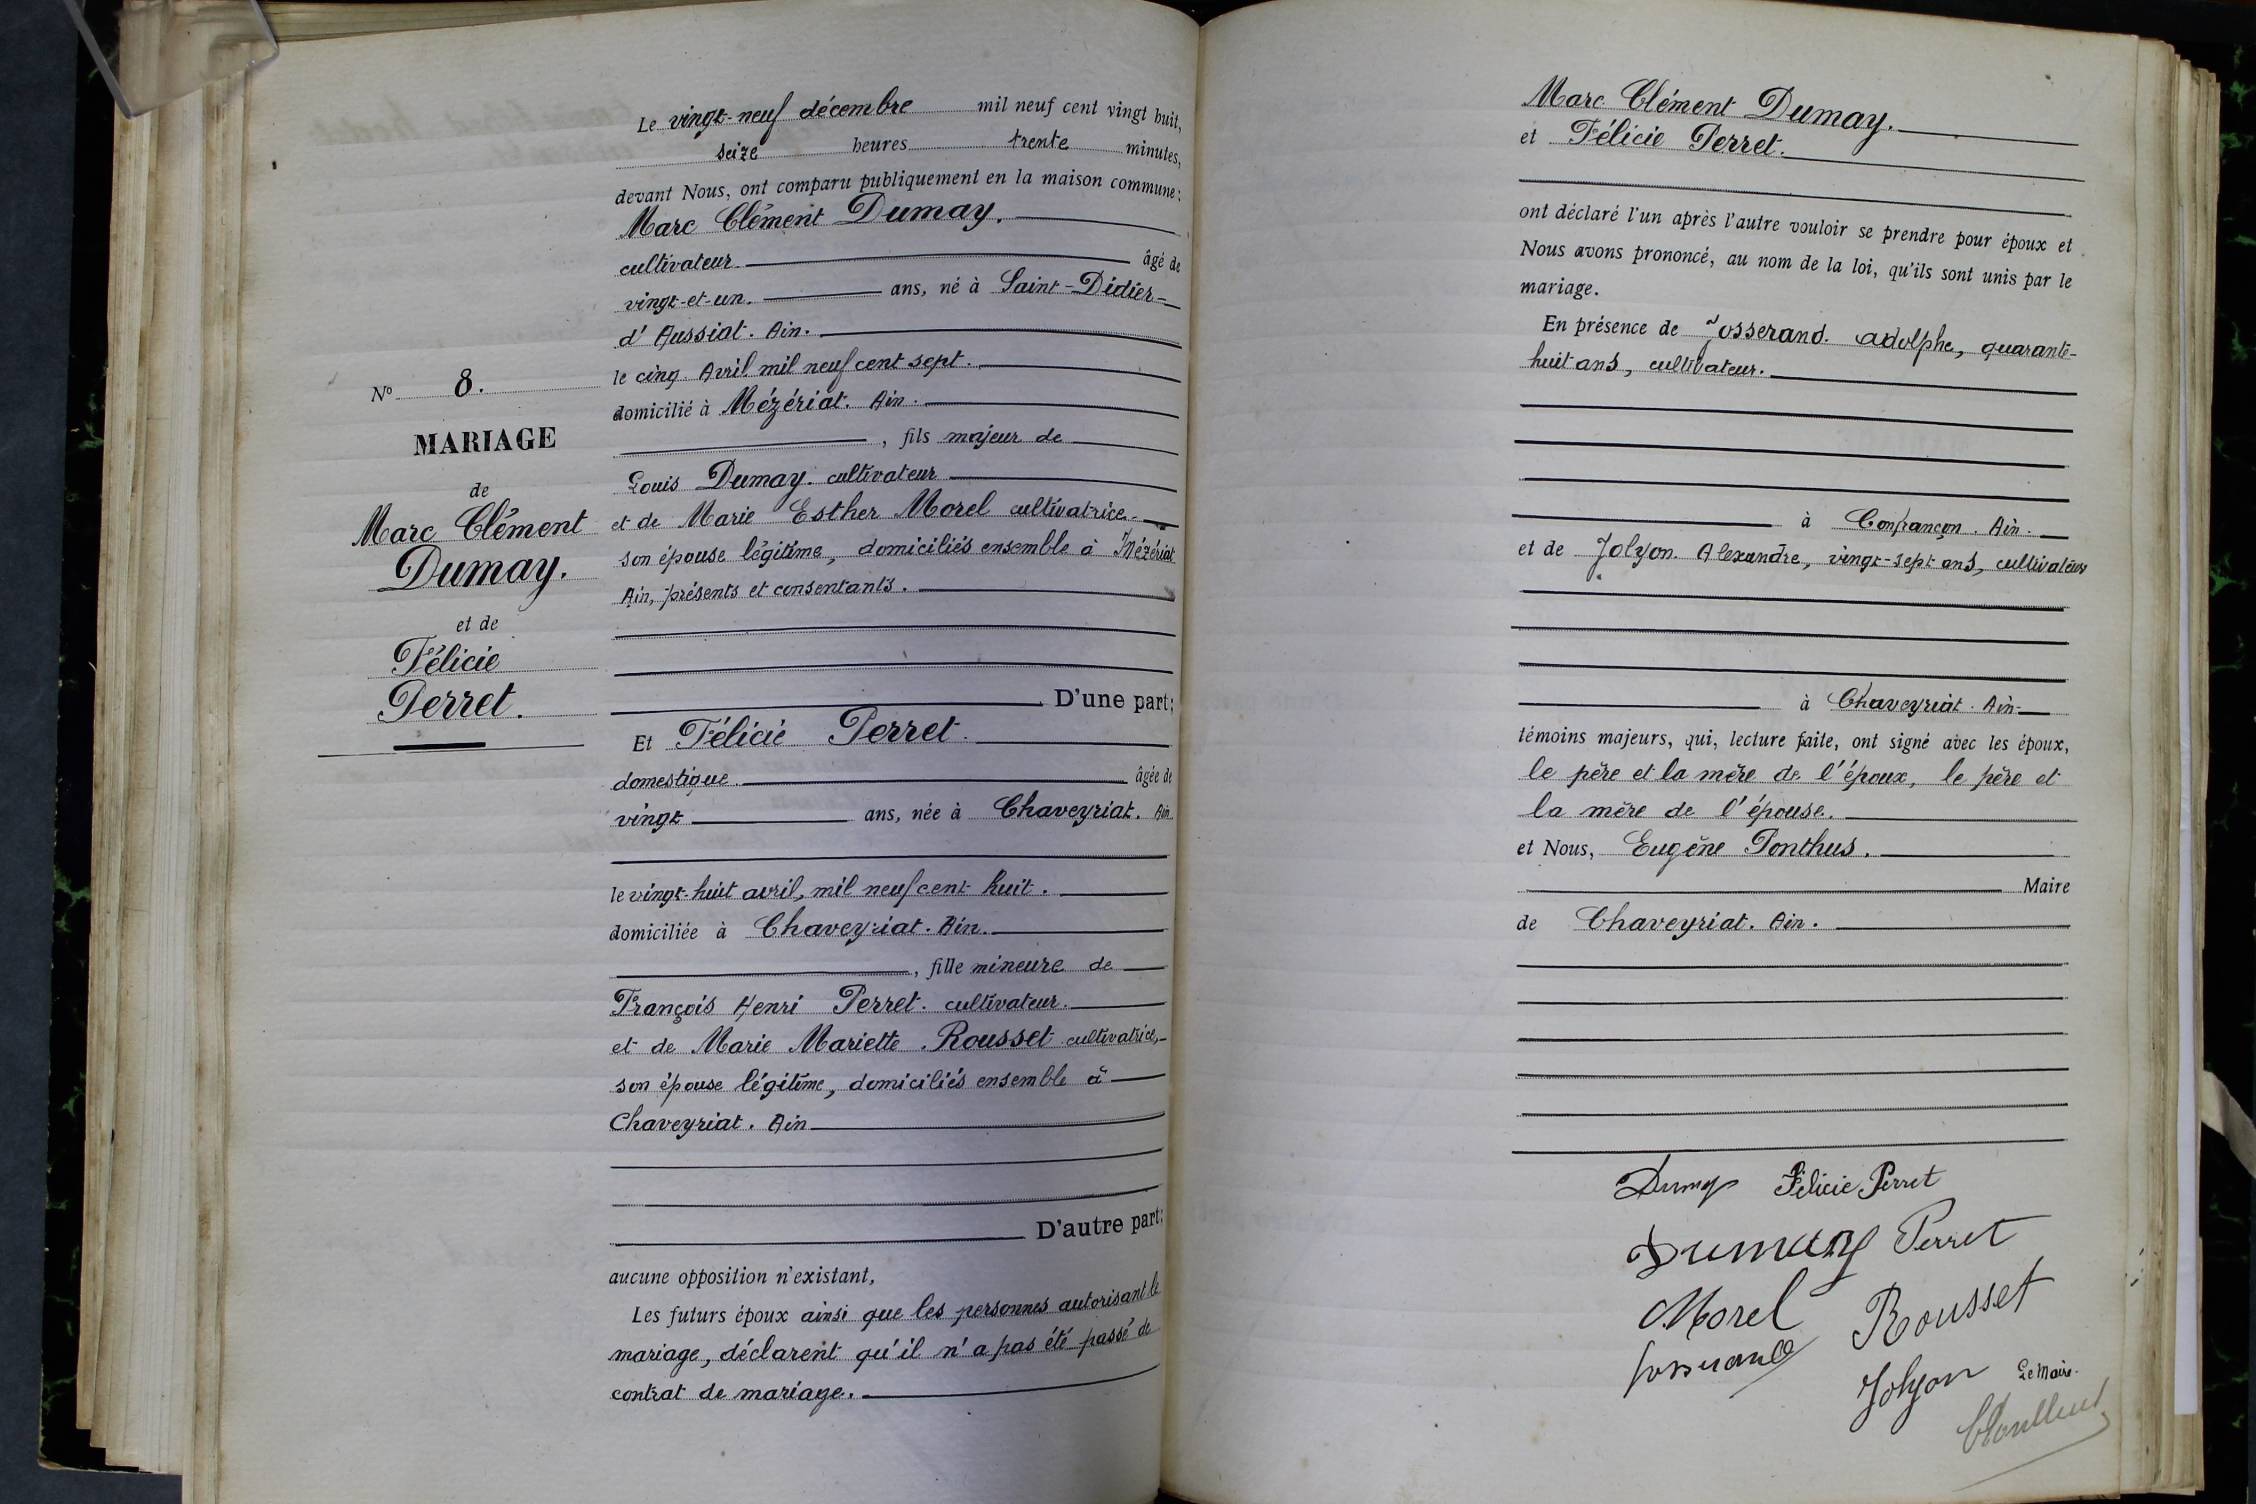 Le vingt-neuf décembre mil neuf cent vingt huit,
seize heures trente minutes,
devant Nous, ont comparu publiquement en la maison commune :
Marc Clément Dumay.
cultivateur âgé de
vingt-et-un. ans, né à Saint-Didier-
d'Aussiat. Ain.
le cinq Avril mil neuf cent sept.
domicilié à Mézériat. Ain.
, fils majeur de
Louis Dumay. cultivateur
et de Marie Esther Morel cultivatrice
son épouse légitime, domiciliés ensemble à Mézériat
Ain, présents et consentants.
D'une part ;
Et Félicie Perret.
domestique. âgée de
vingt ans, née à Chaveyriat. Ain
le vingt-huit avril, mil neuf cent huit.
domiciliée à Chaveyriat. Ain.
, fille mineure de
François Henri Perret. cultivateur.
et de Marie Mariette Rousset cultivatrice,
son épouse légitime, domiciliés ensemble à
Chaveyriat. Ain
D'autre part ;
aucune opposition n'existant,
Les futurs époux ainsi que les personnes autorisant le
mariage, déclarent qu'il n'a pas été passé de
contrat de mariage.
No 8.
MARIAGE
de
Marc Clément
Dumay.
et de
Félicie
Perret.
Marc Clément Dumay.
et Félicie Perret.
ont déclaré l'un après l'autre vouloir se prendre pour époux et
Nous avons prononcé, au nom de la loi, qu'ils sont unis par le
mariage.
En présence de Josserand. Adolphe, quarante-
huit ans, cultivateur.
à Confrançon. Ain.
et de Jolyon. Alexandre, vingt-sept ans, cultivateur
à Chaveyriat. Ain.
témoins majeurs, qui, lecture faite, ont signé avec les époux,
le père et la mère de l'époux, le père et
la mère de l'épouse.
et Nous, Eugène Ponthus.
Maire
de Chaveyriat. Ain.
Dumay Félicie Perret
Dumay Perret
Morel Rousset
Josserand
Jolyon Le Maire.